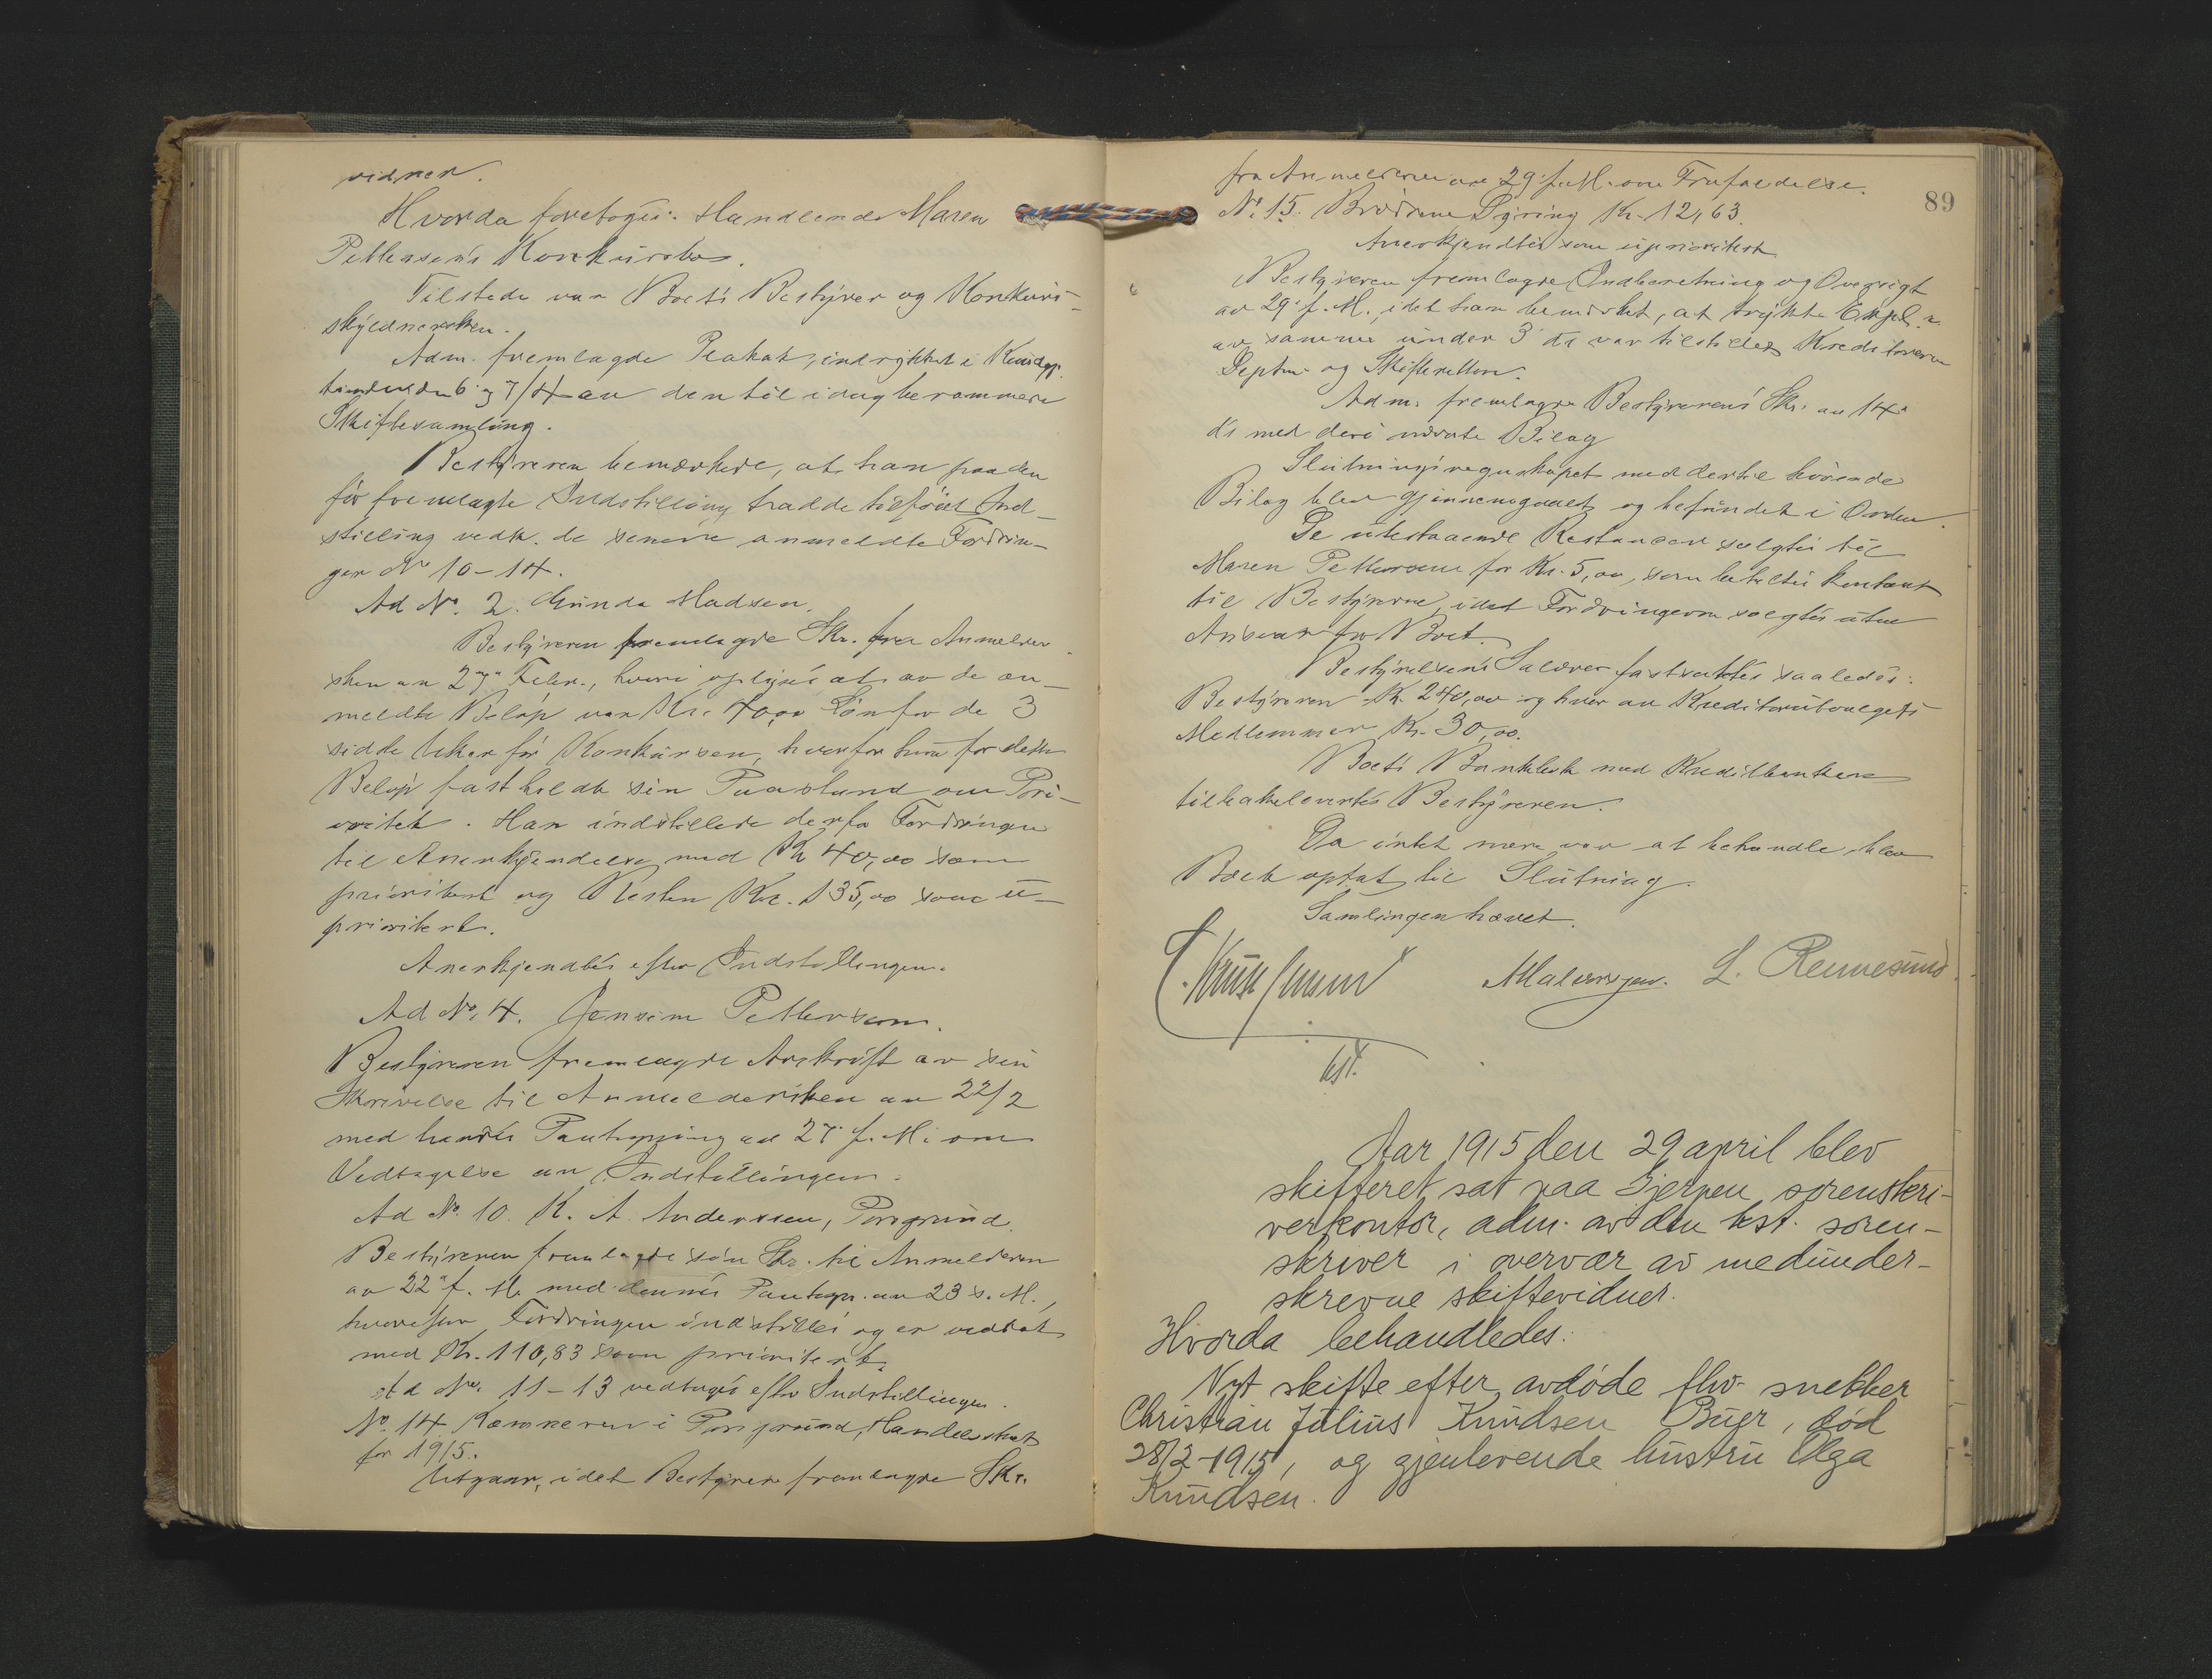 vidner.
Hvorda foretoges: Handlende Maren
Pettersens Konkursbo.
Tilstede var Boets Bestyrer og Konkurs-
skyldnersken.
Adm. fremlagde Plakat, indrykket i Kundgj.
tidende den 6 og 7/4 av den til idag berammede
Skiftesamling.
Bestyreren bemærkede, at han paa den
før fremlagte Indstilling hadde tilføiet Ind-
stilling vedk. de senere anmeldte Fordrin-
ger No 10-14.
Ad No. 2. Gunda Madsen.
Bestyreren fremlagde Skr. fra Anmelder
sken av 27de Febr., hvori oplyses at av de an-
meldte Beløp var Kr. 40,00 Løn for de 3
sidste Uker før Konkursen, hvorfor hun for dette
Beløp fastholdt sin Paastand om Pri-
oritet. Han indstillede derfor Fordringen
til Anerkjendelse med Kr 40,00 som
prioritert og Resten Kr. 135,00 som u-
prioritert.
Anerkjendtes efter Indstillingen.
Ad No. 4. Jensine Pettersen.
Bestyreren fremlagde Avskrift av sin
Skrivelse til Anmeldersken av 22/2
med hendes Paategning av 27 f. M. om
Vedtagelse av Indstillingen.
Ad No. 10. K. A. Anderssen, Porsgrund.
Bestyreren fremlagde sin Skr. til Anmelderen
av 22 f. M. med dennes Paategn. av 23 s. M.,
hvorefter Fordringen indstilles og er vedtat
med Kr. 110,83 som prioritert.
Ad No. 11-13 vedtoges efter Indstillingen.
No. 14 Kæmneren i Porsgrund, Handelsskat
for 1915.
Utgaar, idet Bestyreren fremlagde Skr.
89
fra Anmelderen av 29 f. M. om Frafaldelse.
No. 15. Brødrene Dyring Kr. 12,63.
Anerkjendtes som uprioritert
Bestyreren fremlagde Indberetning og Oversigt
av 29 f. M., idet han bemerket, at trykte Expl.
av samme under 3 ds var tilstillet Kreditorerne
Deptm. og Skifteretten.
Adm. fremlagde Bestyrerens Skr. av 14
ds med deri nævnte Bilag
Slutningsregnskapet med dertil hørende
Bilag blev gjennemgaaet og befundet i Orden.
De utestaaende Restancer solgtes til
Maren Pettersen for Kr. 5,00, som betaltes kontant
til Bestyreren, idet Fordringerne solgtes uten
Ansvar for Boet.
Bestyrelsens Salærer fastsattes saaledes:
Bestyreren Kr. 240,00 og hver av Kreditorutvalgets
Medlemmer Kr. 30,00.
Boets Bankbok med Kreditbanken
tilbakelevertes Bestyreren.
Da intet mere var at behandle, blev
Boet optat til Slutning.
Samlingen hævet.
L. Rennesund
kst.
Aar 1915 den 29 april blev
skifteret sat paa Gjerpen sorenskri-
verkontor, adm. av den kst. soren-
skriver i overvær av medunder-
skrevne skiftevidner.
Hvorda behandledes:
Nyt skifte efter avdøde fhv. snekker
Christian Julius Knudsen Buer, død
28/2-1915, og gjenlevende hustru Olga
Knudsen.